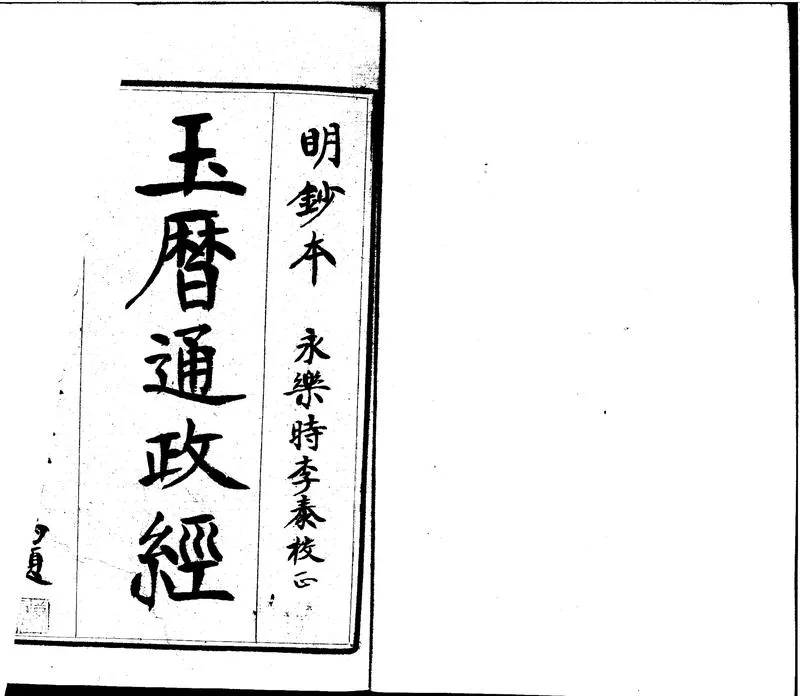 明鈔本 永樂時李泰校正
玉暦通政經